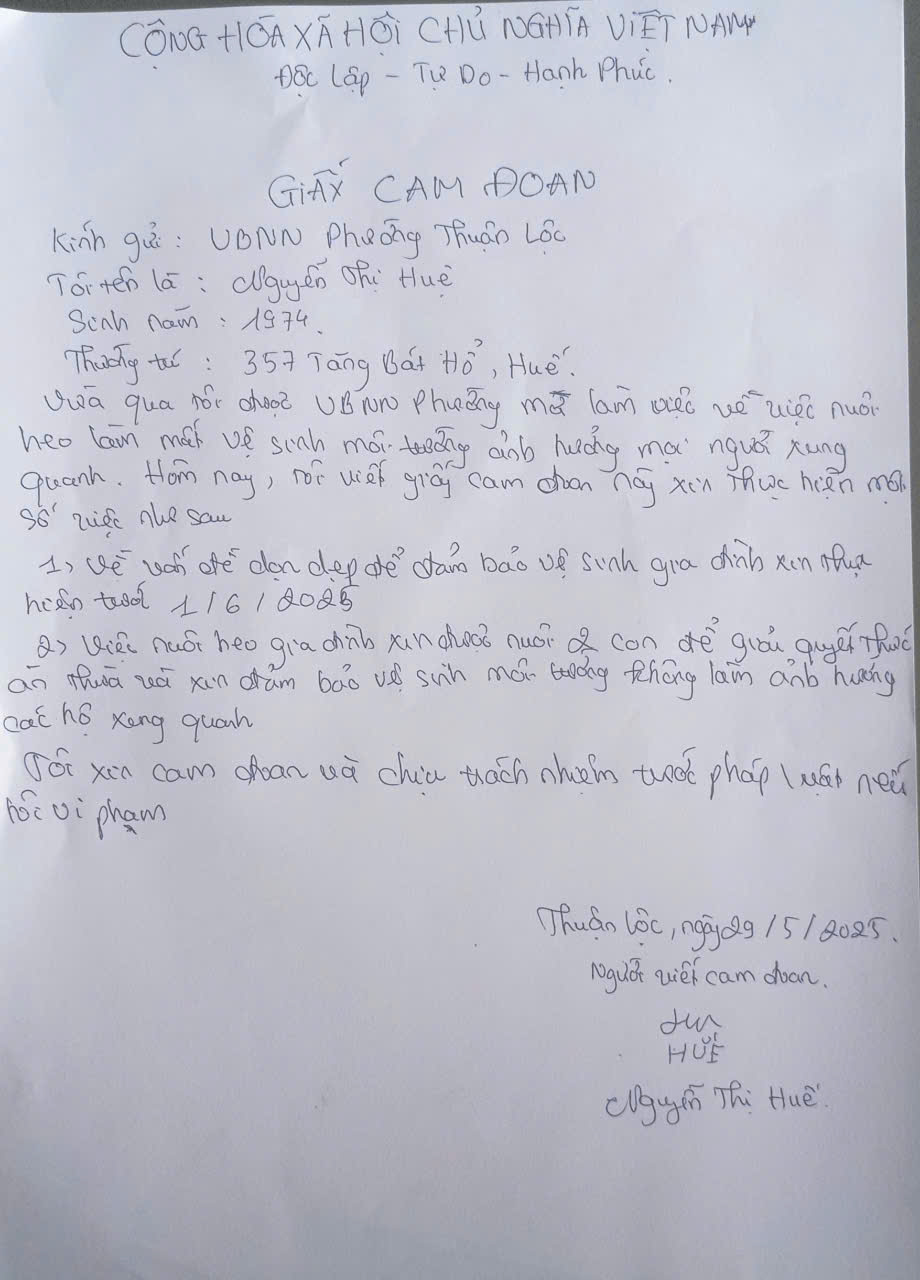 CỘNG HÒA XÃ HỘI CHỦ NGHĨA VIỆT NAM
Độc Lập - Tự Do - Hạnh Phúc.
GIẤY CAM ĐOAN
Kính gửi : UBNN Phường Thuận Lộc
Tôi tên là : Nguyễn Thị Huệ
Sinh năm : 1974.
Thường trú : 357 Tăng Bát Hổ, Huế.
Vừa qua tôi được UBNN Phường mời làm việc về việc nuôi
heo làm mất vệ sinh môi trường ảnh hưởng mọi người xung
quanh. Hôm nay, tôi viết giấy cam đoan này xin thực hiện một
số việc như sau
1, Về vấn đề dọn dẹp để đảm bảo vệ sinh gia đình xin thực
hiện trước 1/6/2025
2, Việc nuôi heo gia đình xin được nuôi 2 con để giải quyết thức
ăn thừa và xin đảm bảo vệ sinh môi trường không làm ảnh hưởng
các hộ xung quanh
Tôi xin cam đoan và chịu trách nhiệm trước pháp luật nếu
tôi vi phạm
Thuận Lộc, ngày 29/5/2025.
Người viết cam đoan.
HUẾ
Nguyễn Thị Huế.